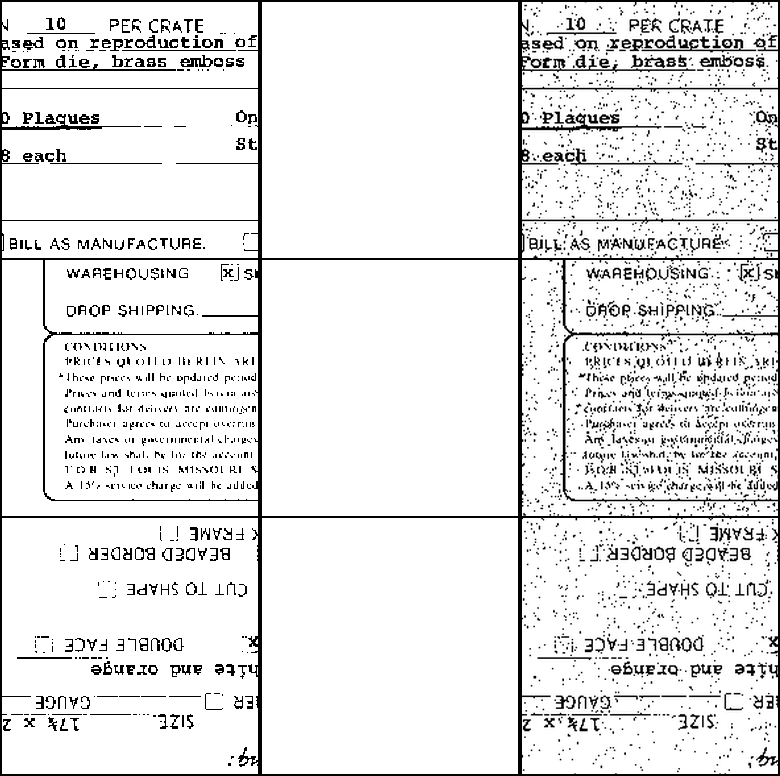 N 10 PER CRATE
ased on reproduction of
Form die, brass emboss
0 Plaques On
St
8 each
BILL AS MANUFACTURE.
N 10 PER CRATE
ased on reproduction of
Form die, brass emboss
0 Plaques On
St
8 each
BILL AS MANUFACTURE
WAREHOUSING X SH
DROP SHIPPING
CONDITIONS
PRICES QUOTED HEREIN ARE
*These prices will be updated period
Prices and terms quoted herein are
contracts for delivery are contingen
Purchaser agrees to accept overrun
Any taxes or governmental charges
future law shall be for the account
F.O.B. ST. LOUIS, MISSOURI
A 1½% service charge will be added
WAREHOUSING X SH
DROP SHIPPING
CONDITIONS
PRICES QUOTED HEREIN ARE
*These prices will be updated period
Prices and terms quoted herein are
contracts for delivery are contingen
Purchaser agrees to accept overrun
Any taxes or governmental charges
future law shall be for the account
F.O.B. ST. LOUIS, MISSOURI
A 1½% service charge will be added
ng:
SIZE 17¾ x 2
ER GAUGE
hite and orange
X DOUBLE FACE
CUT TO SHAPE
BEADED BORDER
K FRAME
ng:
SIZE 17¾ x 2
ER GAUGE
hite and orange
X DOUBLE FACE
CUT TO SHAPE
BEADED BORDER
K FRAME